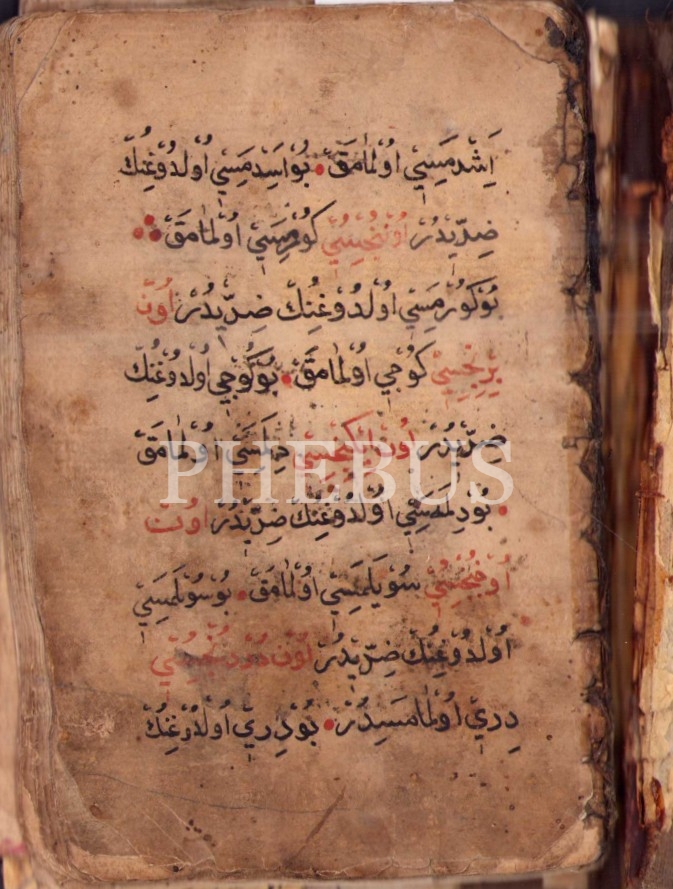 اَشِدمَسِي اوُلمامَقْ • بُو اسِدمَسِي اوُلدوُغنِكْ
ضِدِّيدُرْ اوُنُنْجِيسِي كوُرْمَسِي اوُلمامَقْ
بُوكوُرْمَسِي اوُلدُوغنِكْ ضِدِّيدُرْ اوُنْ
بِرِنْجِيسِي كوُجِي اوُلمامَقْ • بُوكوُجِي اوُلدُوغنِكْ
ضِدِّيدُرْ اوُنْ ايكِنْجِيسِي دِلَمَسِي اوُلمامَقْ
PHEBUS
• بُودِلَمَسِي اوُلدُوغنِكْ ضِدِّيدُرْ اوُنْ
اوُجُنْجِيسِي سُويلَمَسِي اوُلمامَقْ • بُوسُويلَمَسِي
اوُلدُوغنِكْ ضِدِّيدُرْ اوُنْ دوُردُنْجِيسِي
دِرِي اوُلمامَسِيدُرْ • بُودِرِي اوُلدُوغنِكْ